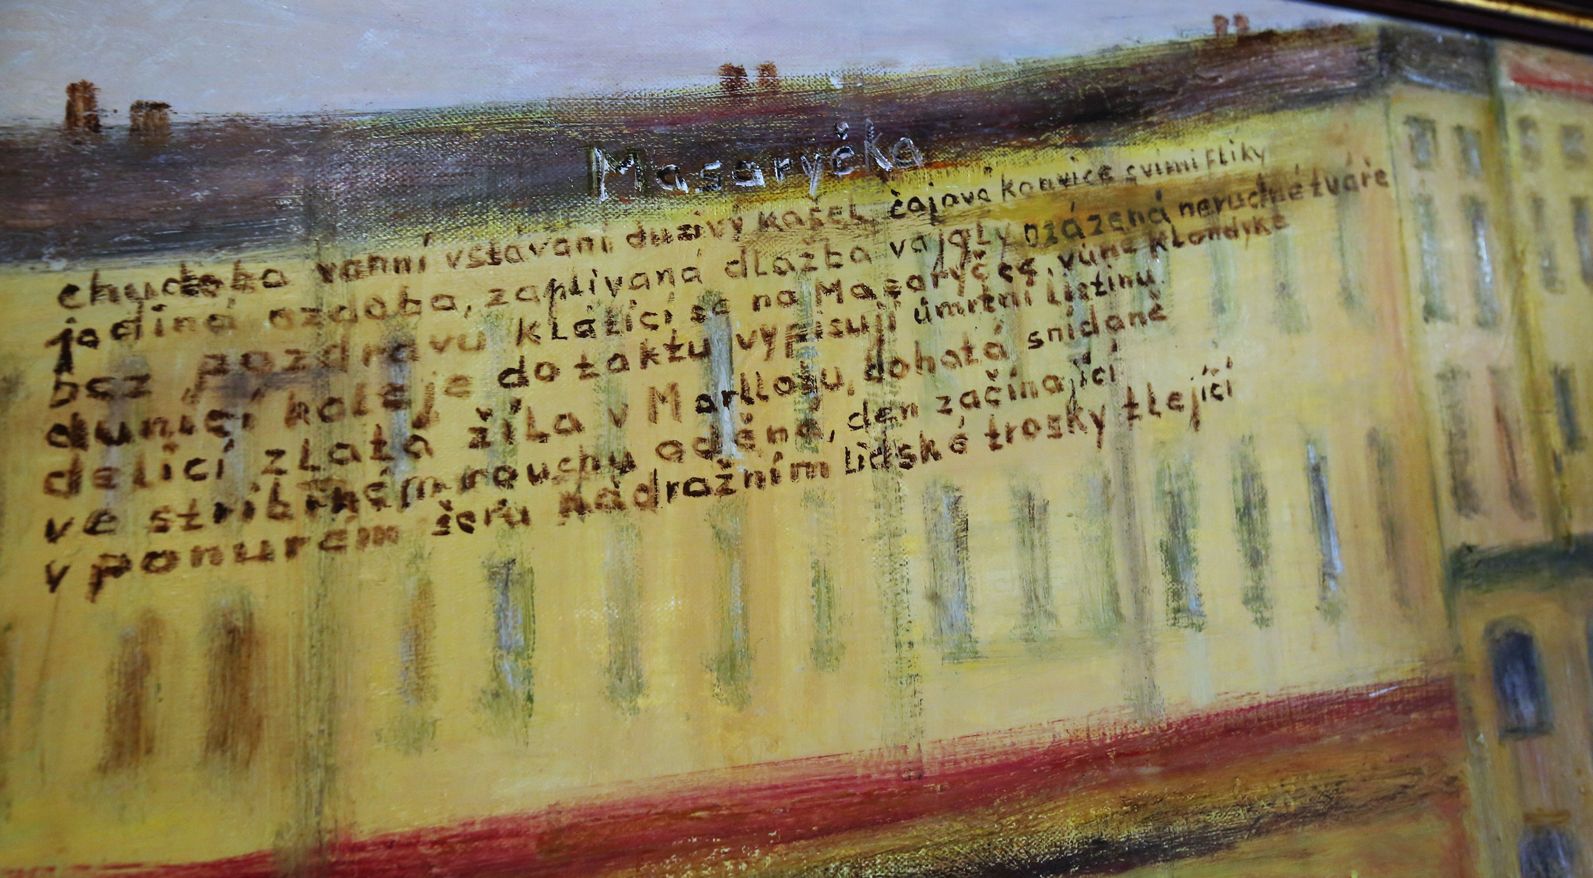 Masaryčka
chudoba ranní vstávaní dusivý kašel, čajové konvice svimi fliky
jediná ozdoba, zaplivaná dlažba vajgly ozázená nerudné tváře
bez pozdravu klátící se na Masaryčce, vůně Klondyke
dunící koleje do taktu vypisují úmrtní listinu
delící zlatá žíla v Marllosu, bohatá snídaně
ve stribrném rouchu oděná, den začínající
v ponurém šeru nádražním lidské trosky tlející